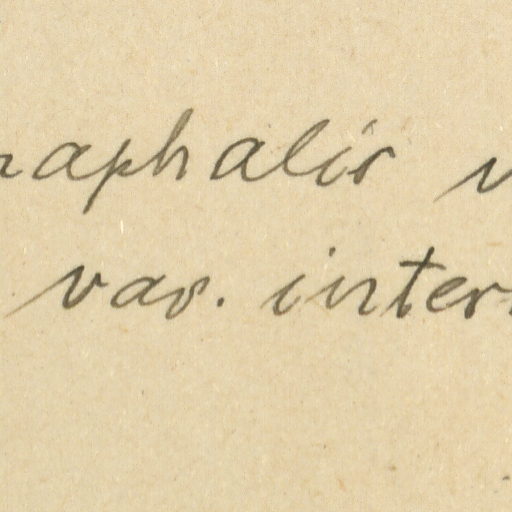 naphalis
var. inter